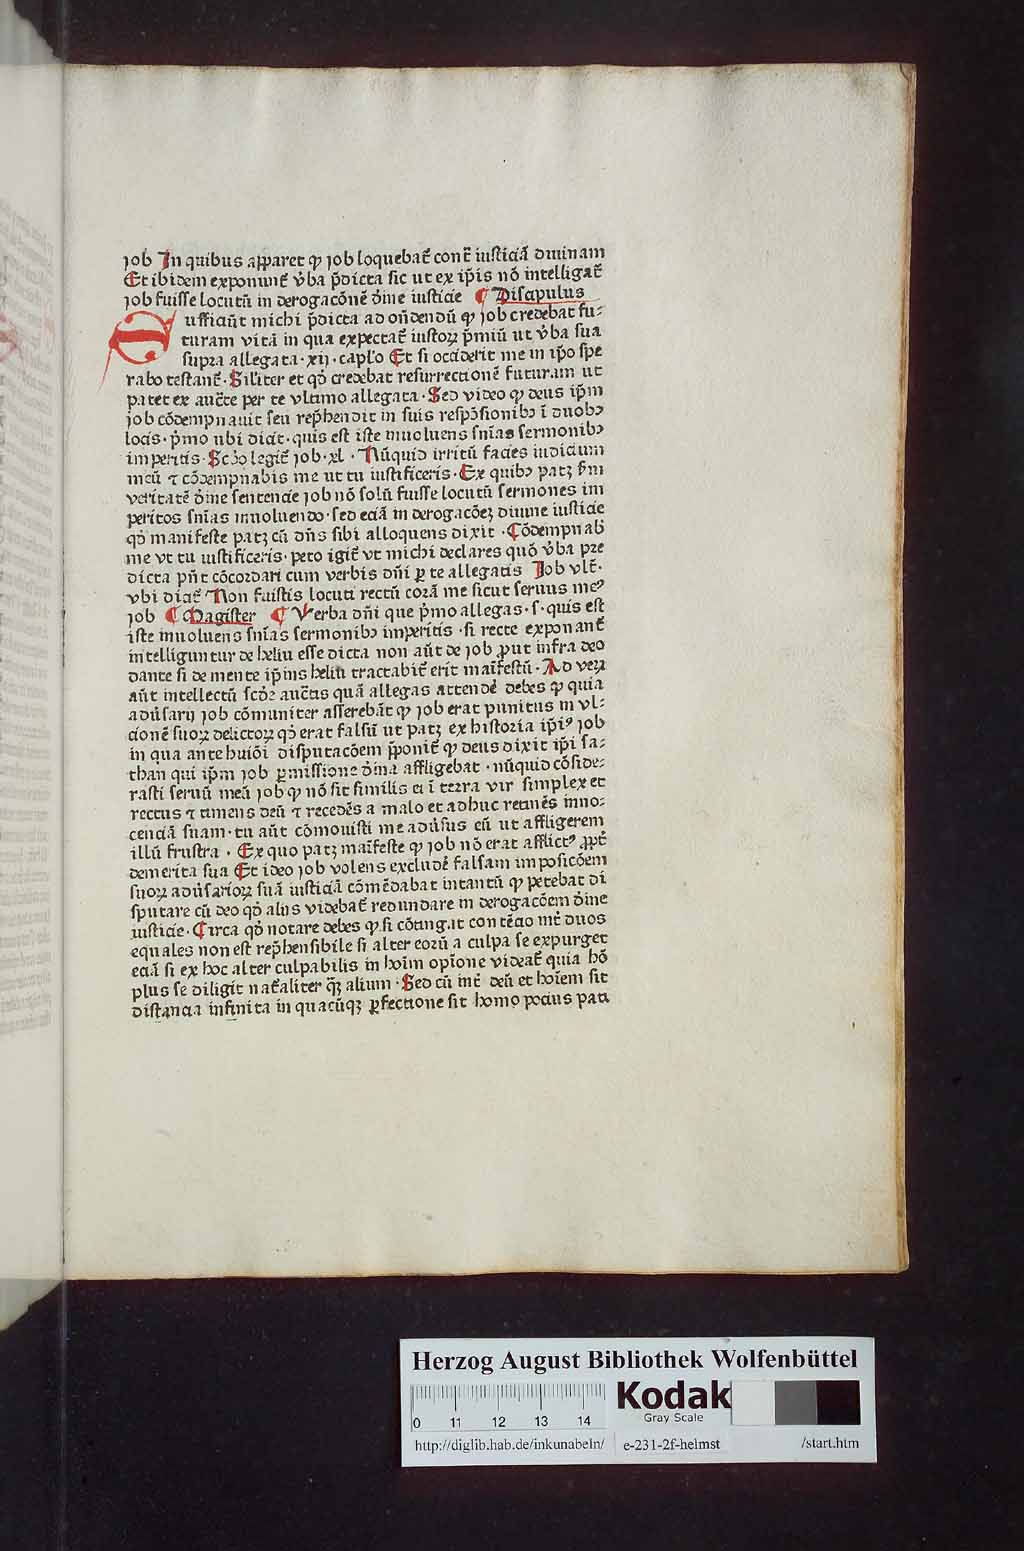 job In quibus apparet ꝙ job loquebat᷑ cont᷑ iusticiā diuinam
Et ibidem exponunt᷑ v̉ba p̄dicta sic ut ex ip̄is nō intelligat᷑
job fuisse locutū in derogacōnē dīne iusticie ¶ Discipulus
Sufficiūt michi p̄dicta ad on̄dendū ꝙ job credebat fu⸗
turam vitā in qua expectat᷑ iustoꝝ p̄miū ut v̉ba sua
supra allegata · xij · capl̓o Et si occiderit me in ip̄o spe
rabo testant᷑ · Sil̓iter et qd̓ credebat resurrectionē futuram ut
patet ex auc̄te per te vltimo allegata · Sed video ꝙ deus ip̄m
job cōdempnauit seu rep̄hendit in suis respōsionibꝰ ī duobꝰ
locis · p̄mo ubi dicit · quis est iste inuoluens sn̄ias sermonibꝰ
imperitis · Scd̓o legit᷑ job · xl · Nūquid irritū facies iudicium
meū ⁊ cōdempnabis me ut tu iustificeris · Ex quibꝰ patꝫ s̄m
veritatē dīne sentencie job nō solū fuisse locutū sermones im
peritos sn̄ias inuoluendo · sed eciā in derogacōeꝫ diuine iusticie
qd̓ manifeste patꝫ cū dn̄s sibi alloquens dixit · Cōdempnab
me vt tu iustificeris · peto igit᷑ vt michi declares quō v̉ba pre
dicta pn̄t cōcordari cum verbis dn̄i ꝑ te allegatis Job vlt᷑ ·
vbi dicit᷑ Non fuistis locuti rectū corā me sicut seruus meꝰ
job ¶ Magister ¶ Verba dn̄i que p̄mo allegas · s · quis est
iste inuoluens sn̄ias sermonibꝰ imperitis · si recte exponant᷑
intelliguntur de heliu esse dicta non aūt de job ꝓut infra deo
dante si de mente ip̄ius heliu tractabit᷑ erit maīfestū · Ad verū
aūt intellectū scd̓e auc̄tis quā allegas attendē debes ꝙ quia
adu̓sarij job cōmuniter asserebāt ꝙ job erat punitus in vl⸗
cionē suoꝝ delictoꝝ qd̓ erat falsū ut patꝫ ex historia ip̄iꝰ job
in qua ante huiōi disputacōem p̄ponit᷑ ꝙ deus dixit ip̄i sa⸗
than qui ip̄m job ꝑmissione dīna affligebat · nūquid cōside⸗
rasti seruū meū job ꝙ nō sit similis ei ī terra vir simplex et
rectus ⁊ timens deū ⁊ recedēs a malo et adhuc retinēs inno⸗
cenciā suam · tu aūt cōmouisti me adu̓sus eū ut affligerem
illū frustra · Ex quo patꝫ maīfeste ꝙ job nō erat afflictꝰ ꝓpt᷑
demerita sua Et ideo job volens excludē falsam imposicōem
suoꝝ adu̓sarioꝝ suā iusticiā cōmēdabat intantū ꝙ petebat di
sputare cū deo qd̓ alijs videbat᷑ redundare in derogacōem dīne
iusticie · Circa qd̓ notare debes ꝙ si cōtingat contēcio int᷑ duos
equales non est rep̄hensibile si alter eorū a culpa se expurget
eciā si ex hoc alter culpabilis in hoīm opīone videat᷑ quia hō
plus se diligit nat᷑aliter qꝫ̄ alium · Sed cū int᷑ deū et hoīem sit
distancia infinita in quacūqꝫ ꝑfectione sit homo pocius pati
Herzog August Bibliothek Wolfenbüttel
0 11 12 13 14
Kodak
Gray Scale
http://diglib.hab.de/inkunabeln/ e-231-2f-helmst /start.htm